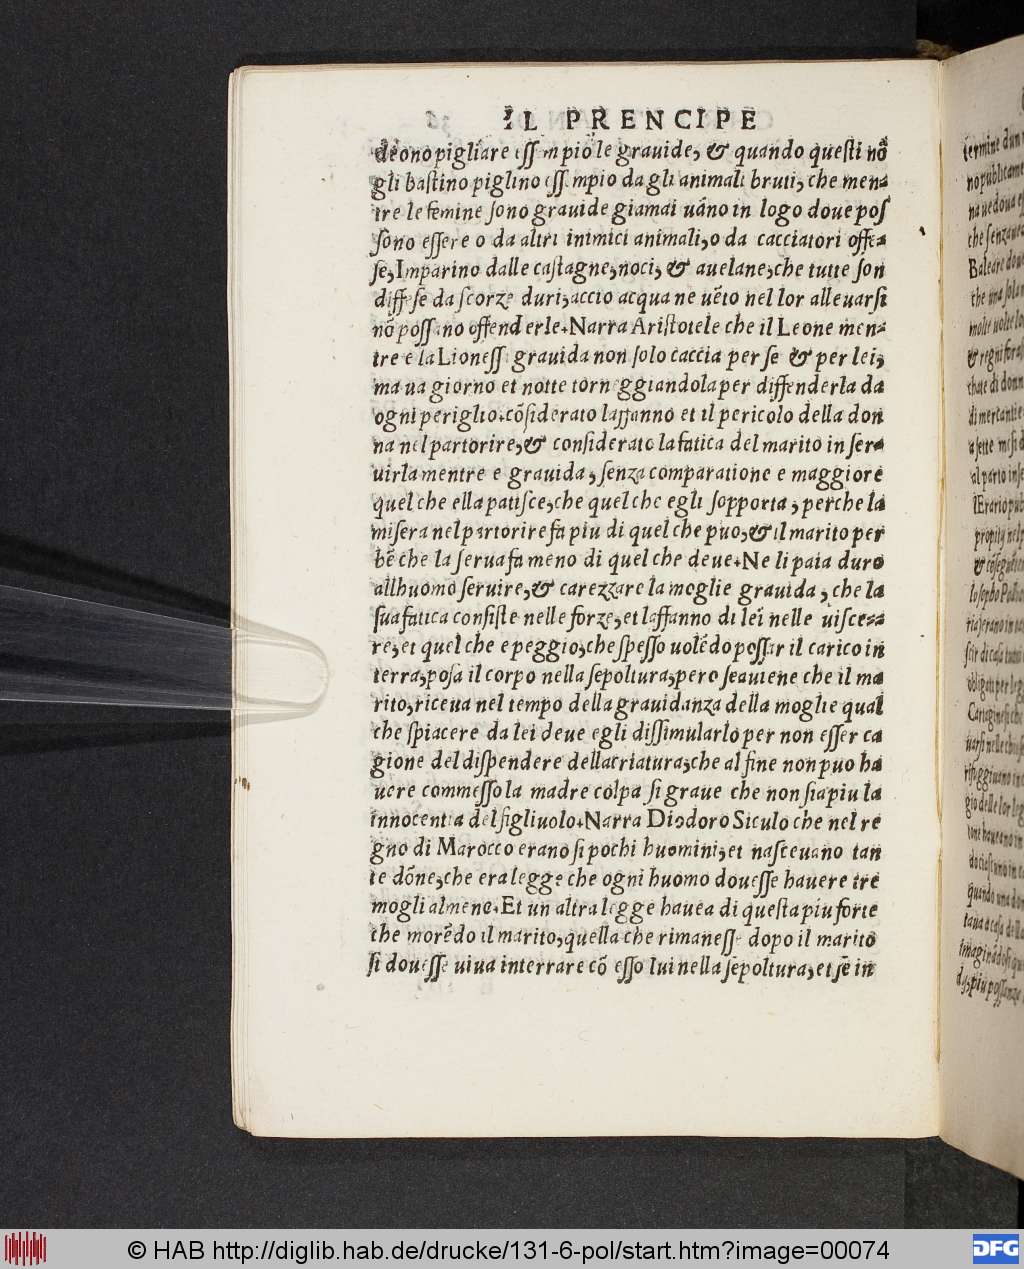 IL PRENCIPE
deono pigliare essempio le gravide, & quando questi nō
gli bastino piglino essempio da gli animali bruti, che men-
tre le femine sono gravide giamai vāno in logo doue pos
sono essere o da altri inimici animali, o da cacciatori offe-
se, Imparino dalle castagne, noci, & auelane, che tutte son
diffese da scorze duri, accio acqua ne uēto nel lor alleuarsi
nō possano offenderle. Narra Aristotele che il Leone men-
tre e la Lionessa grauida non solo caccia per se & per lei,
ma ua giorno et notte torneggiandola per diffenderla da
ogni periglio. cōsiderato laffanno et il pericolo della don
na nel partorire, & considerato la fatica del marito in ser-
uirla mentre e grauida, senza comparatione e maggiore
quel che ella patisce, che quel che egli sopporta, perche la
misera nel partorire fa piu di quel che puo, & il marito per
bē che la serua fa meno di quel che deue. Ne li paia duro
allhuomo seruire, & carezzare la moglie grauida, che la
sua fatica consiste nelle forze, et laffanno di lei nelle uisce-
re, et quel che e peggio, che spesso uolēdo possar il carico in
terra, posa il corpo nella sepoltura, pero se auiene che il ma
rito, riceua nel tempo della grauidanza della moglie qual
che spiacere da lei deue egli dissimularlo per non esser ca
gione del dispendere della criatura, che al fine non puo ha
uere commesso la madre colpa si graue che non sia piu la
innocentia del figliuolo. Narra Diodoro Siculo che nel re
gno di Marocco erano si pochi huomini, et nasceuano tan
te dōne, che era legge che ogni huomo douesse hauere tre
mogli almeno. Et un altra legge hauea di questa piu forte
che morēdo il marito, quella che rimanesse dopo il marito
si douesse uiua interrare cō esso lui nella sepoltura, et se in
termine dun
no publicame
na uedoua es
che senza
Baleare doue
che una sola
molte uolte
& regni
di mercantie
a sette mesi
al parto inse
lErario pub
propity nel
Cartaginesi che
quando una don
taua a casa della
dy, piu possanza
© HAB http://diglib.hab.de/drucke/131-6-pol/start.htm?image=00074
DFG